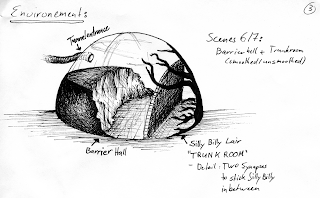 Environement:
3
Tunnelentrance
Scenes 6/7:
Barrier hall + Trunkroom
(smoothed/unsmoothed)
Barrier Hall
Silly Billy Lair
"TRUNK ROOM"
- Detail: Two Synapses
to stick Silly Billy
inbetween